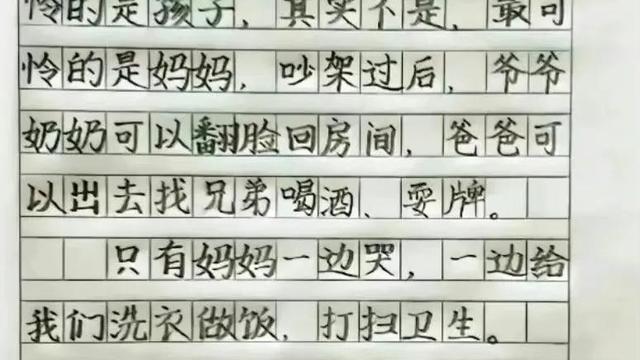 怜的是孩子，其实不是，最可
怜的是妈妈，吵架过后，爷爷
奶奶可以翻脸回房间，爸爸可
以出去找兄弟喝酒、耍牌。
只有妈妈一边哭，一边给
我们洗衣做饭，打扫卫生。